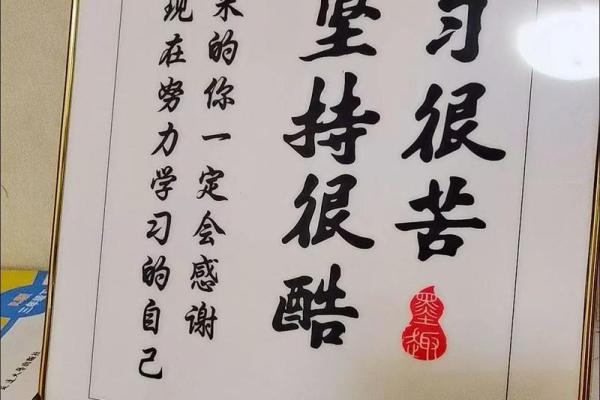 习很苦
坚持很酷
来的你一定会感谢
现在努力学习的自己
墨趣